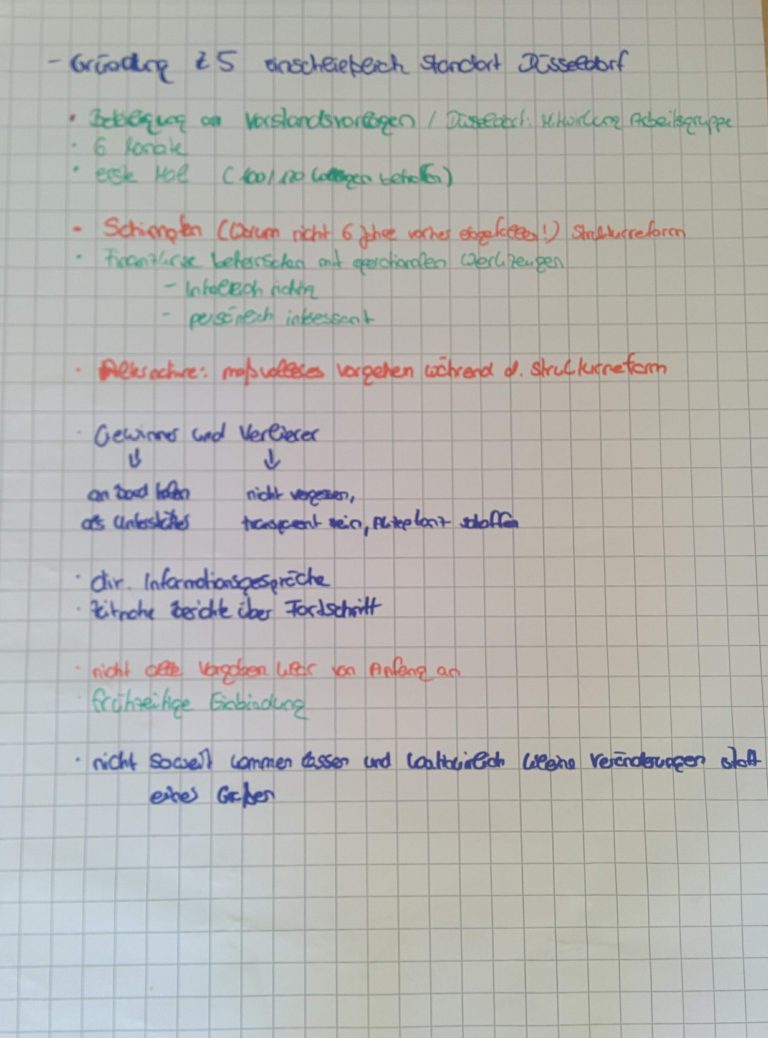 - Gründung Z5 einschließlich Standort Düsseldorf
• Beteiligung an Vorstandsvorlagen / Düsseldorf: Mitwirkung Arbeitsgruppe
• 6 Monate
• erste Mal (100/120 Kollegen betroffen)
• Schimpfen (Warum nicht 6 Jahre vorher !) Strukturreform
• Finanzkrise beherrschen mit Werkzeugen
- Inhaltlich richtig
- persönlich interessant
• maßvolleres vorgehen während d. Strukturreform
• Gewinner und Verlierer
↓ ↓
an Bord holen nicht vergessen,
als Unterstützer transparent sein, Akzeptanz schaffen
• dir. Informationsgespräche
• Zeitnahe Berichte über Fortschritt
• nicht alle Vorgaben klar von Anfang an
• frühzeitige Einbindung
• nicht soweit kommen lassen und kontinuierlich kleine Veränderungen statt
eines Großen